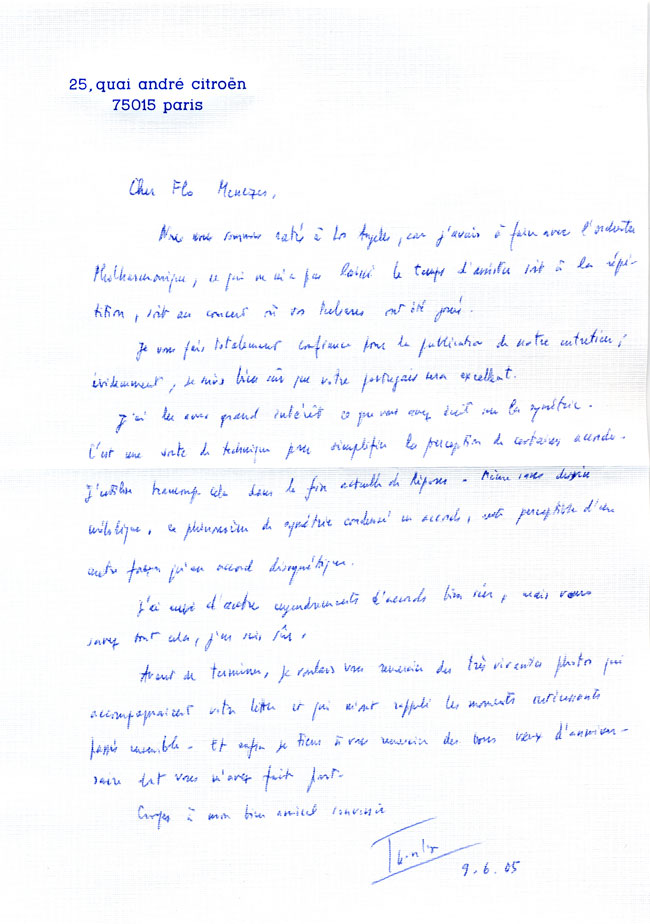 25, quai andré citroën
75015 paris
Cher Flo Menezes,
Nous nous sommes ratés à Los Angeles, car j'avais à faire avec l'orchestre
Philharmonique, ce qui ne m'a pas laissé le temps d'assister soit à la répé-
tition, soit au concert où vos ont été joués.
Je vous fais totalement confiance pour la publication de notre entretien;
évidemment, je suis bien sûr que votre portugais sera excellent.
J'ai lu avec grand intérêt ce que vous avez écrit sur la symétrie.
C'est une sorte de technique pour simplifier la perception de certains accords.
J'utilise beaucoup cela dans la fin actuelle de Répons. Même sans
mélodique, ce phénomène de symétrie condensé en accords, reste perceptible d'une
autre façon qu'un accord
J'ai usé d'autres engendrements d'accords bien sûr, mais vous
savez tout cela, j'en suis sûr.
Avant de terminer, je voulais vous remercier des très vivantes photos qui
accompagnaient votre lettre et qui m'ont rappelé les moments
passés ensemble. Et enfin je tiens à vous remercier des bons vœux d'anniver-
saire dont vous m'avez fait part.
Croyez à mon bien amical souvenir
9.6.05